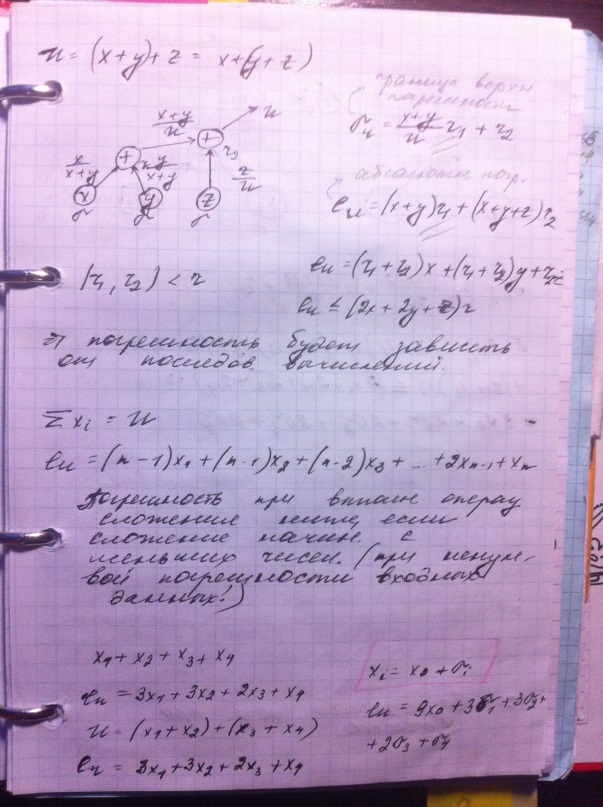 u = (x+y)+z = x+(y+z)
граница верхн
погрешности
σu = (x+y)/u r1 + r2
(x+y)/u
u
+
r2
x/(x+y)
+
y/(x+y)
z/u
x
y
z
σ
σ
σ
абсолютн погр.
eu = (x+y)r1 + (x+y+z)r2
|r1, r2| < r
eu = (r1+r2)x + (r1+r2)y + r2z
eu ≤ (2x+2y+z)r
⇒ погрешность будет зависеть
от последов. вычислений.
Σxi = u
eu = (n-1)x1 + (n-1)x2 + (n-2)x3 + ... + 2xn-1 + xn
Погрешность при выполн операц
сложение ниже, если
сложение начин с
меньших чисел. (при
погрешности входных
данных!)
x1 + x2 + x3 + x4
eu = 3x1 + 3x2 + 2x3 + x4
u = (x1+x2) + (x3+x4)
eu = 3x1 + 3x2 + 2x3 + x4
xi = x0 + σi
eu = 9x0 + 3σ1 + 3σ2 +
+ 2σ3 + σ4